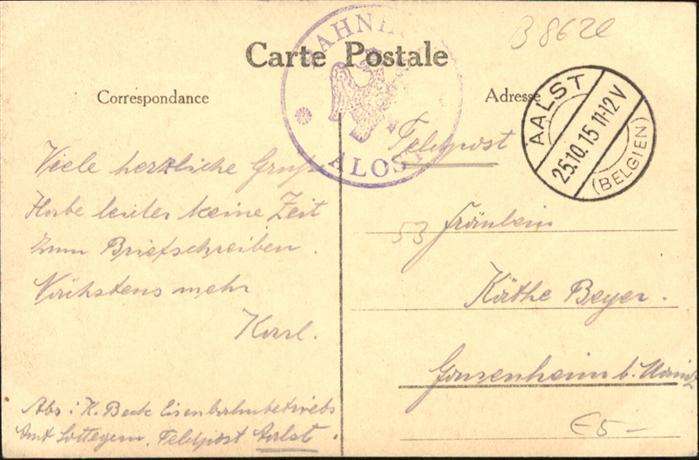 B 862e
Carte Postale
BAHNH
ALOST
Correspondance
Adresse
AALST
25.10.15 11-12 V
(BELGIEN)
Feldpost
Viele herzliche Grüße
Habe leider keine Zeit
zum Briefschreiben.
Nächstens mehr
Karl.
Abs: K. Beck Eisenbahnbetriebs
Amt Sottegem, Feldpost Aalst
53 Fräulein
Käthe Beyer.
Gonsenheim b. Mainz
€5-